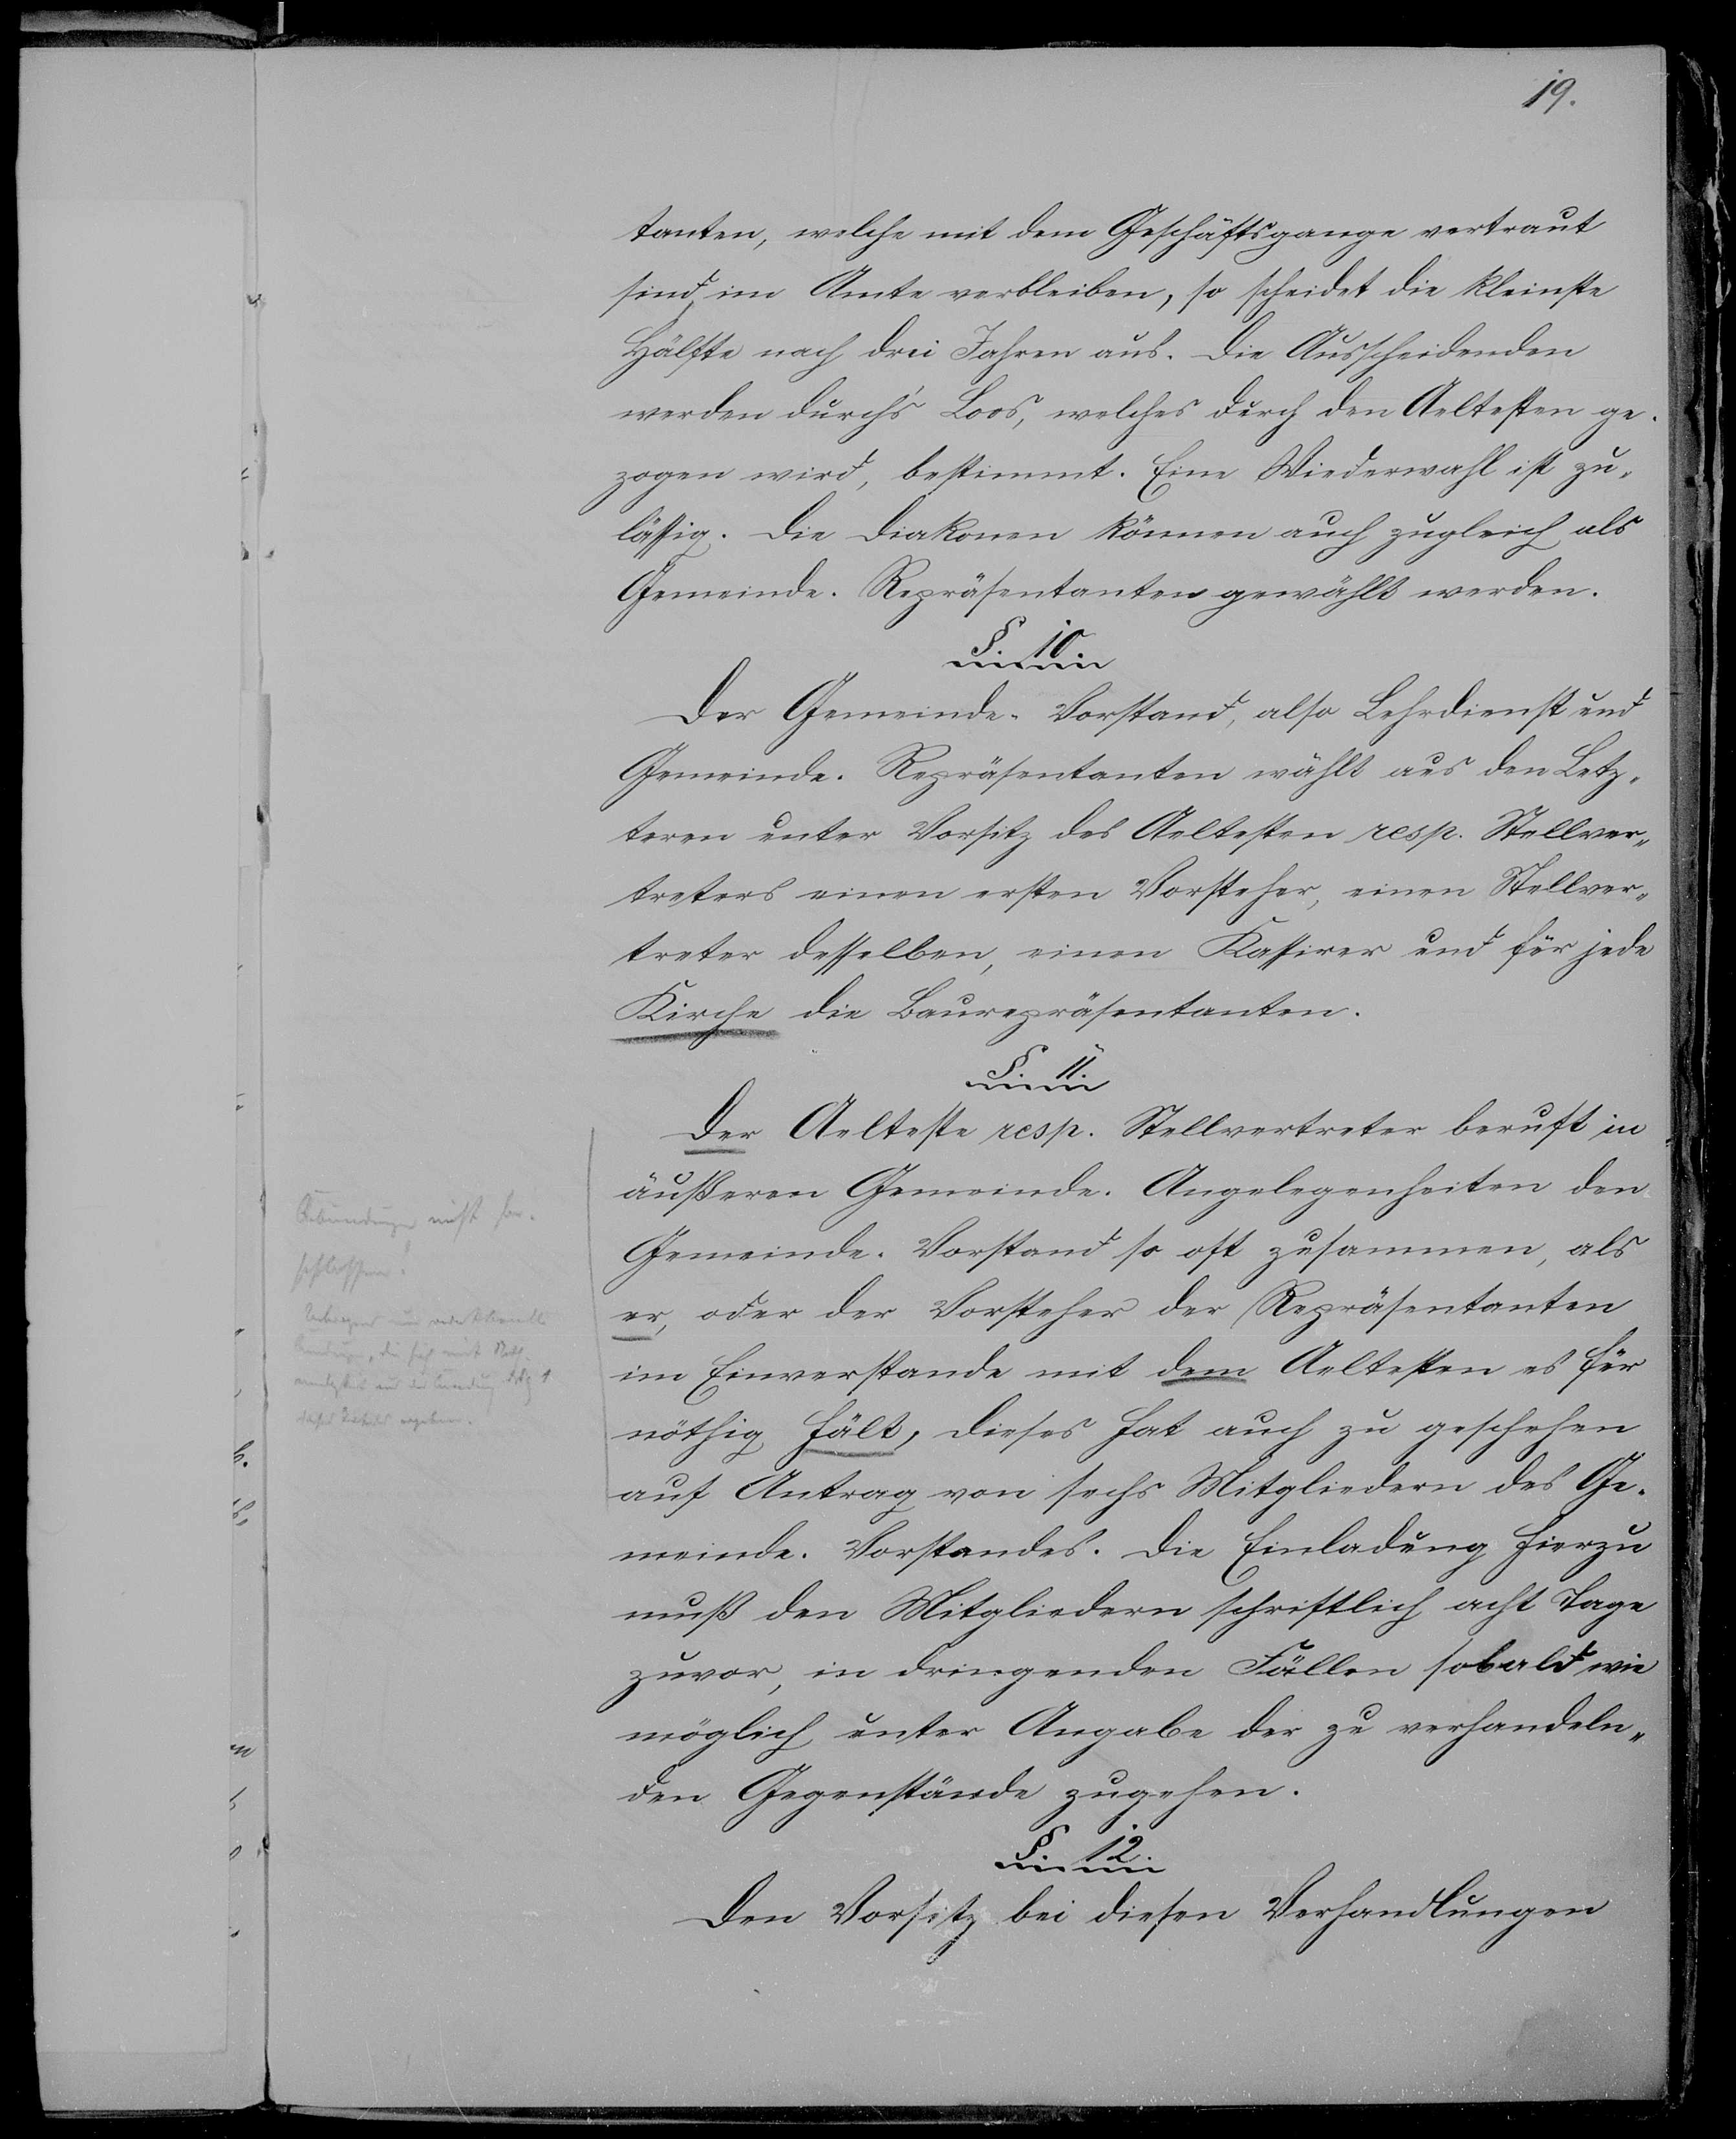 19.
tanten, welche mit dem Geschäftsgange vertraut
sind, im Amte verbleiben, so scheidet die kleinste
Hälfte nach drei Jahren aus. Die Ausscheidenden
werden durch's Loos, welches durch den Aeltesten ge-
zogen wird, bestimmt. Eine Wiederwahl ist zu-
lässig. Die Diakonen können auch zugleich als
Gemeinde-Repräsentanten gewählt werden.
§. 10.
Der Gemeinde-Vorstand, also Lehrdienst und
Gemeinde-Repräsentanten wählt aus den Letz-
teren unter Vorsitz des Aeltesten resp. Stellver-
treters einen ersten Vorsteher, einen Stellver-
treter desselben, einen Kassirer und für jede
Kirche die Baurepräsentanten.
§. 11.
Der Aelteste resp. Stellvertreter beruft in
äußeren Gemeinde-Angelegenheiten den
Gemeinde-Vorstand so oft zusammen, als
er, oder der Vorsteher der Repräsentanten
im Einverstande mit dem Aeltesten es für
nöthig hält, dieses hat auch zu geschehen
auf Antrag von sechs Mitgliedern des Ge-
meinde-Vorstandes. Die Einladung hierzu
muß den Mitgliedern schriftlich acht Tage
zuvor, in dringenden Fällen sobald wie
möglich unter Angabe der zu verhandeln-
den Gegenstände zugehen.
§. 12.
Den Vorsitz bei diesen Verhandlungen